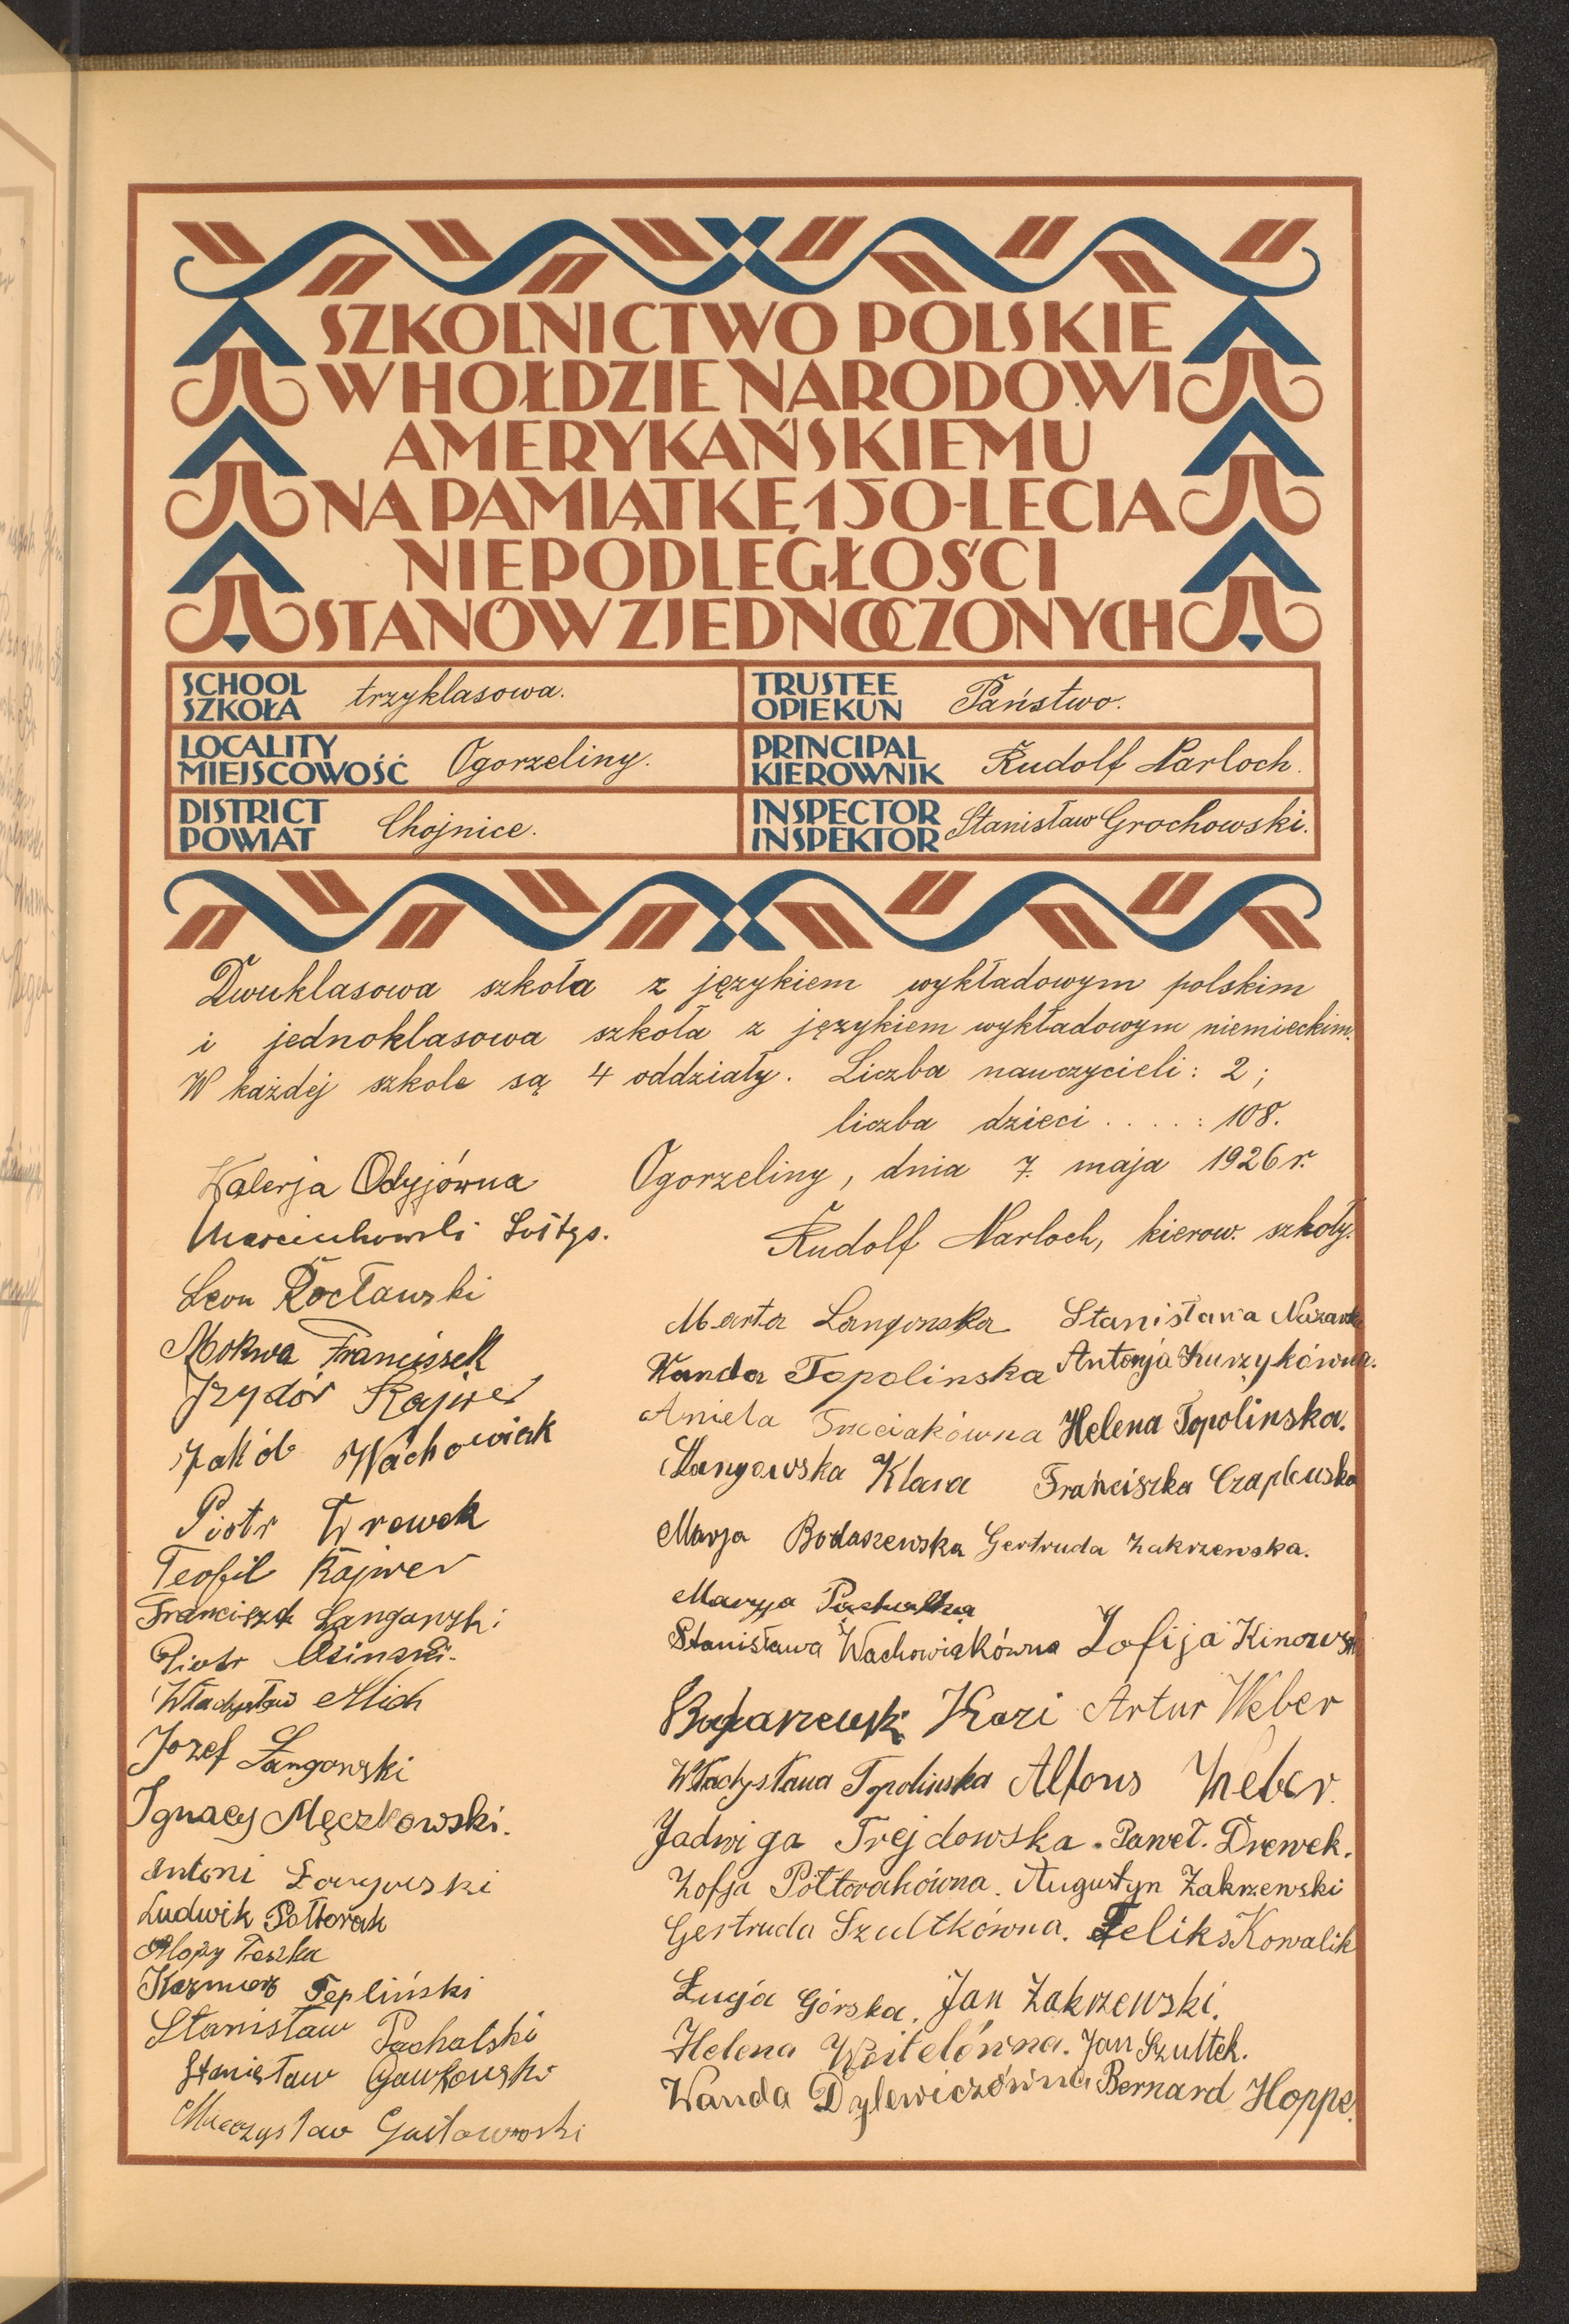 SZKOLNICTWO POLSKIE
W HOŁDZIE NARODOWI
AMERYKAŃSKIEMU
NA PAMIĄTKĘ 150-LECIA
NIEPODLEGŁOŚCI
STANÓW ZJEDNOCZONYCH
SCHOOL
SZKOŁA trzyklasowa.
TRUSTEE
OPIEKUN Państwo.
LOCALITY
MIEJSCOWOŚĆ Ogorzeliny.
PRINCIPAL
KIEROWNIK Rudolf Narloch.
DISTRICT
POWIAT Chojnice.
INSPECTOR
INSPEKTOR Stanisław Grochowski.
Dwuklasowa szkoła z językiem wykładowym polskim
i jednoklasowa szkoła z językiem wykładowym niemieckim.
W każdej szkole są 4 oddziały. Liczba nauczycieli: 2;
liczba dzieci . . . . : 108.
Ogorzeliny, dnia 7. maja 1926 r.
Rudolf Narloch, kierow. szkoły.
Walerja Odyjówna
Leon Rocławski
Mokwa Franciszek
Izydór Rajwer
Jakób Wachowiak
Piotr Drewek
Teofil Rajwer
Franciszek Langowski
Piotr Osinski.
Władysław Mich
Jozef Langowski
Ignacy Męczkowski.
Antoni Langowski
Ludwik Połtorak
Alojzy Teszka
Kazmierz Tepliński
Stanisław Pachalski
Stanisław Gawkowski
Mieczysław
Marta Langowska Stanisława
Wanda Topolinska Antonja Kurzykówna.
Aniela Helena Topolinska.
Langowska Klara Franciszka Czaplewska
Marja Bodaszewska Gertruda Zakrzewska.
Maryja Pachalska
Stanisława Wachowiakówna Zofija Kinowska
Kazi Artur Weber
Władysława Topolinska Alfons Weber.
Jadwiga Trejdowska. Paweł. Drewek.
Zofja Półtorakówna. Augustyn Zakrzewski
Gertruda Szultkówna. Feliks Kowalik
Łucja Górska. Jan Zakrzewski.
Helena Woitelówna. Jan Szultek.
Wanda Dylewiczówna Bernard Hoppe.